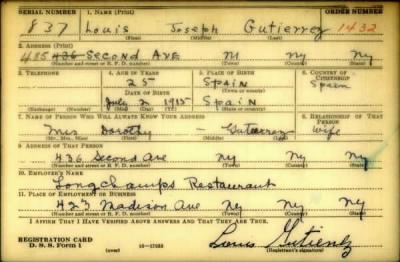 SERIAL NUMBER 1. NAME (Print) ORDER NUMBER
837 Louis Joseph Gutierrez 1432
(First) (Middle) (Last)
2. ADDRESS (Print)
485 436 Second Ave NY NY
(Number and street or R. F. D. number) (Town) (County) (State)
3. TELEPHONE 4. AGE IN YEARS 5. PLACE OF BIRTH 6. COUNTRY OF CITIZENSHIP
25 Spain Spain
DATE OF BIRTH (Town or county)
July 2 1915 Spain
(Exchange) (Number) (Mo.) (Day) (Yr.) (State or country)
7. NAME OF PERSON WHO WILL ALWAYS KNOW YOUR ADDRESS 8. RELATIONSHIP OF THAT PERSON
Mrs Dorothy - Gutierrez Wife
(Mr., Mrs., Miss) (First) (Middle) (Last)
9. ADDRESS OF THAT PERSON
436 Second Ave Ny Ny Ny
(Number and street or R. F. D. number) (Town) (County) (State)
10. EMPLOYER'S NAME
Longchamps Restaurant
11. PLACE OF EMPLOYMENT OR BUSINESS
423 Madison Ave Ny Ny Ny
(Number and street or R. F. D. number) (Town) (County) (State)
I AFFIRM THAT I HAVE VERIFIED ABOVE ANSWERS AND THAT THEY ARE TRUE.
REGISTRATION CARD
D. S. S. Form 1 (over) Louis Gutierrez
(Registrant's signature)